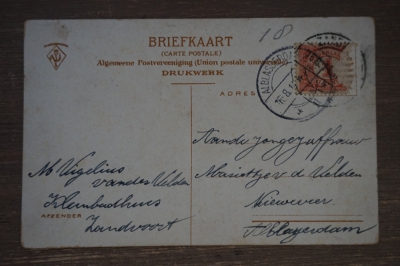 18
BRIEFKAART
(CARTE POSTALE)
Algemeene Postvereeniging (Union postale universelle)
DRUKWERK
ADRES
ALBLASSERDAM
Aan de Jongejuffrouw
Marietje v d Velden
Nieuweveer
Alblasserdam
M Vigelius
van der Velden
Kleinbadhuis
Zandvoort
AFZENDER